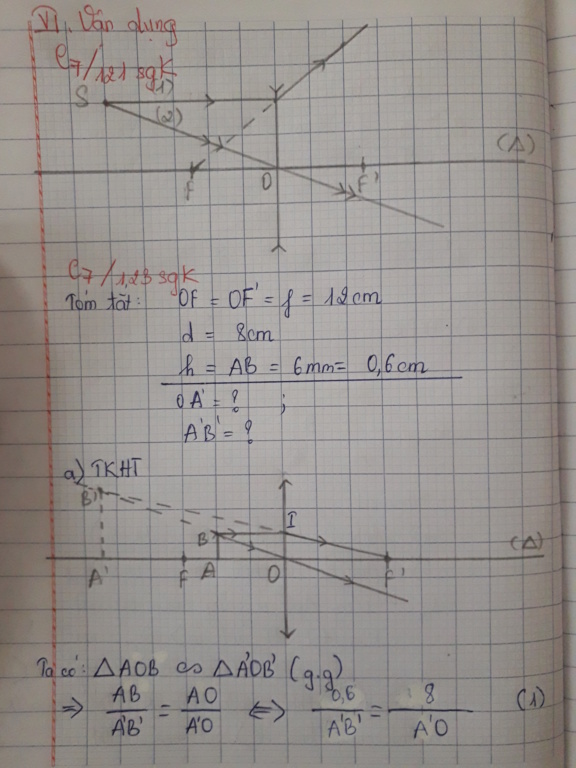 VI. Vận dụng
C7/121 sgk
S
(1)
(2)
(Δ)
F
O
F'
C7/123 sgk
Tóm tắt: OF = OF' = f = 12cm
d = 8cm
h = AB = 6mm = 0,6cm
OA' = ? ;
A'B' = ?
a) TKHT
B'
B
I
(Δ)
A'
F
A
O
F'
Ta có: ΔAOB ∽ ΔA'OB' (g.g)
⇒ AB/A'B' = AO/A'O ⇔ 0,6/A'B' = 8/A'O (1)